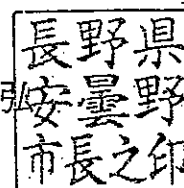 弘
長野県
安曇野
市長之印